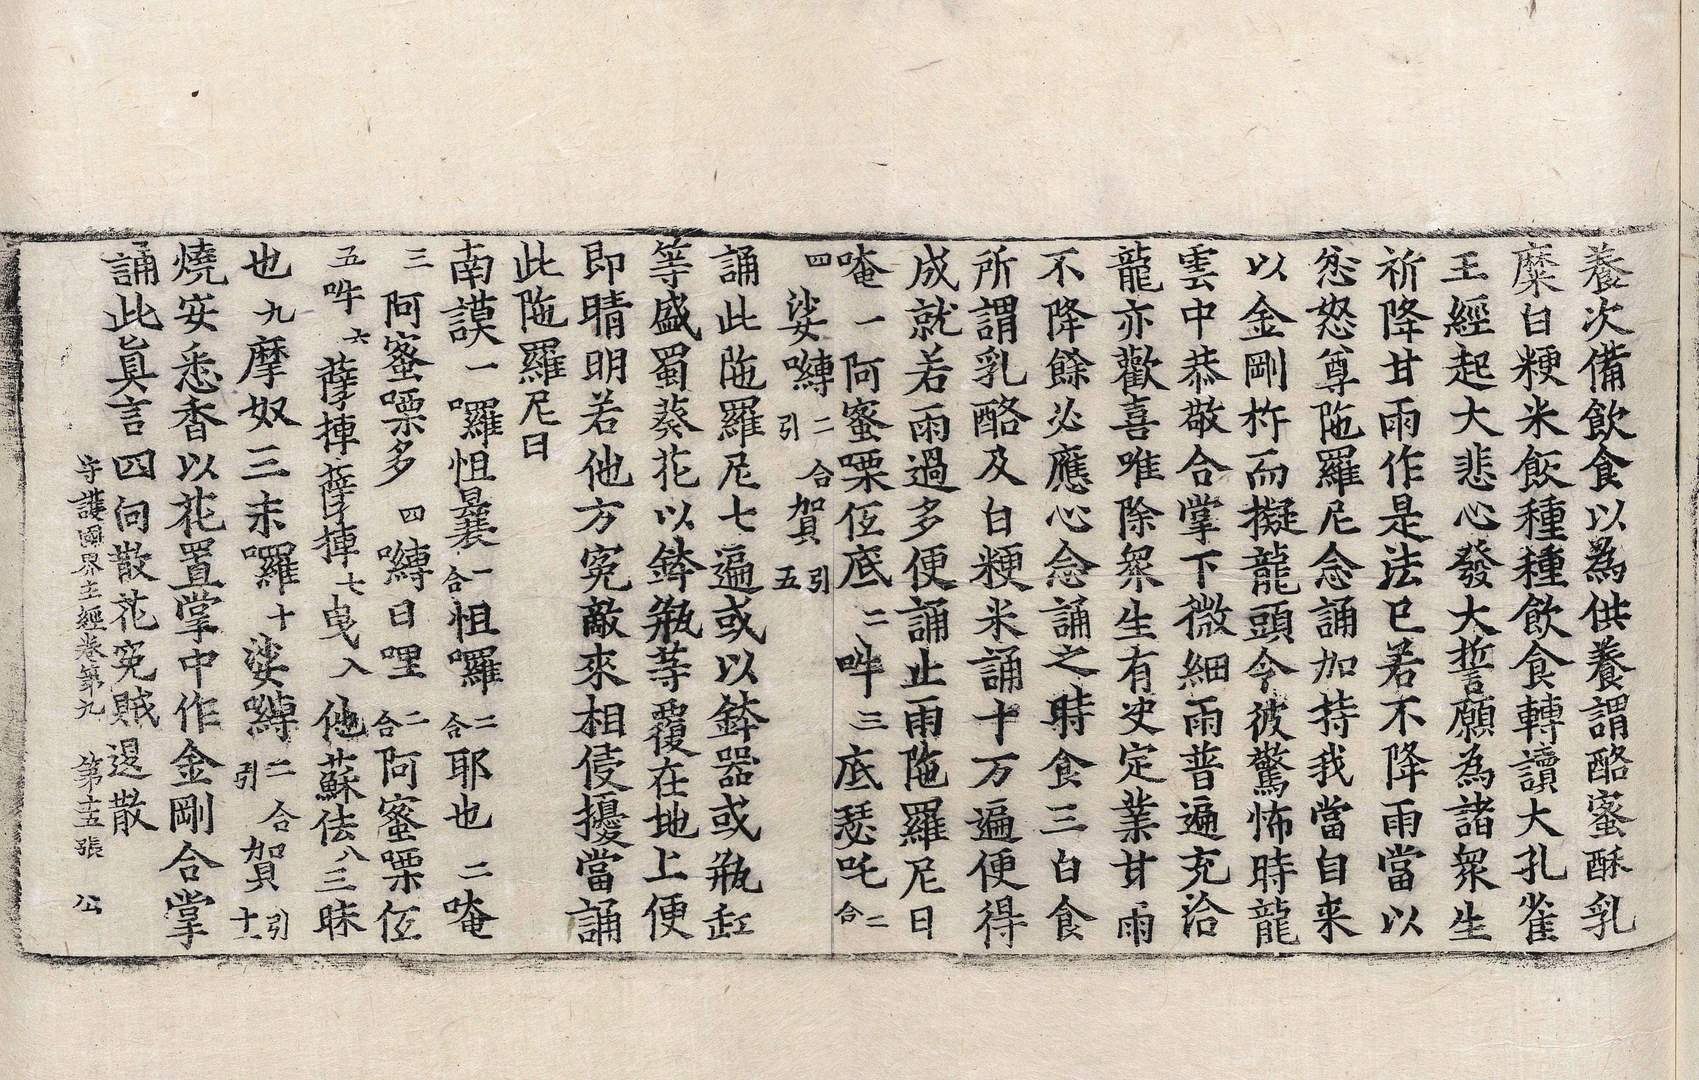 養次備飲食以為供養謂酪蜜酥乳
糜白粳米飯種種飲食轉讀大孔雀
王經起大悲心發大誓願為諸衆生
祈降甘雨作是法已若不降雨當以
忿怒尊陁羅尼念誦加持我當自来
以金剛杵而擬龍頭令彼驚怖時龍
雲中恭敬合掌下微細雨普遍充洽
龍亦歡喜唯除衆生有決定業甘雨
不降餘必應心念誦之時食三白食
所謂乳酪及白粳米誦十万遍便得
成就若雨過多便誦止雨陁羅尼曰
唵一阿蜜㗚伍底二吽三底瑟吒二合
四娑嚩二合引賀引五
誦此陁羅尼七遍或以鉢器或瓶缸
等盛蜀葵花以鉢瓶等覆在地上便
即晴明若他方寃敵來相侵擾當誦
此陁羅尼曰
南謨一囉怛曩二合怛囉二合耶也二唵
三阿蜜㗚多四嚩日哩二合阿蜜㗚伍
五吽六薩捙薩捙七曳入他蘇佉八三昧
也九摩奴三末囉十娑嚩二合引賀引十一
燒安悉香以花置掌中作金剛合掌
誦此真言四向散花寃賊退散
守護國界主經卷第九 第十五張 公